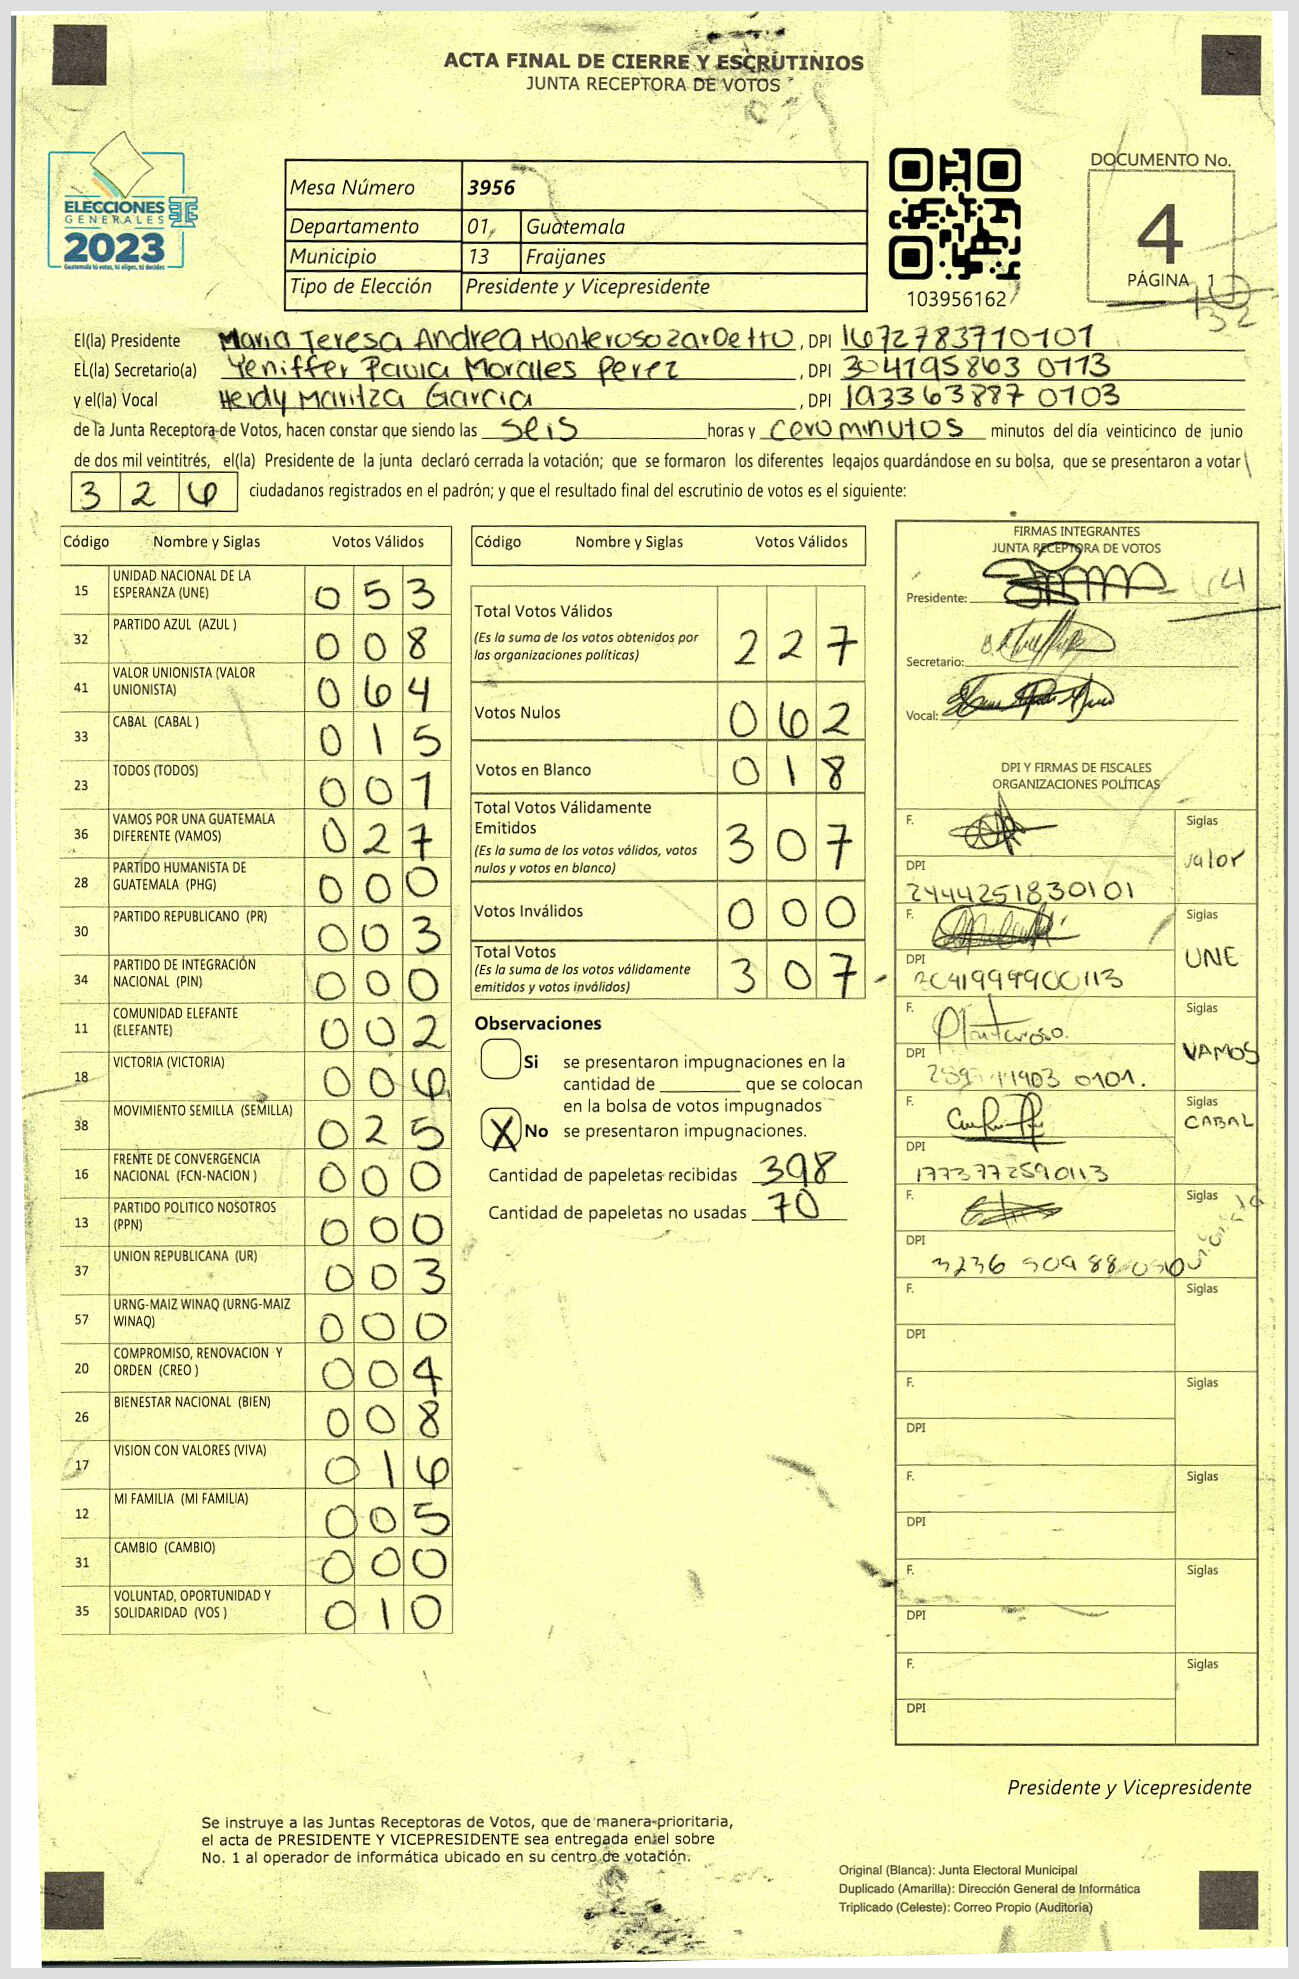 ACTA FINAL DE CIERRE Y ESCRUTINIOS
JUNTA RECEPTORA DE VOTOS
ELECCIONES
GENERALES
2023
Guatemala tú votas, tú eliges, tú decides
Mesa Número 3956
Departamento 01 Guatemala
Municipio 13 Fraijanes
Tipo de Elección Presidente y Vicepresidente
103956162
DOCUMENTO No.
4
PÁGINA 1
32
El(la) Presidente Maria Teresa Andrea Monteroso Zardetto, DPI 1672783710101
EL(la) Secretario(a) Yeniffer Paula Morales Perez, DPI 304195863 0113
y el(la) Vocal Heidy Maritza Garcia, DPI 193363887 0103
de la Junta Receptora de Votos, hacen constar que siendo las seis horas y cero minutos minutos del día veinticinco de junio
de dos mil veintitrés, el(la) Presidente de la junta declaró cerrada la votación; que se formaron los diferentes legajos guardándose en su bolsa, que se presentaron a votar
3 2 6 ciudadanos registrados en el padrón; y que el resultado final del escrutinio de votos es el siguiente:
Código Nombre y Siglas Votos Válidos
15 UNIDAD NACIONAL DE LA ESPERANZA (UNE) 0 5 3
32 PARTIDO AZUL (AZUL ) 0 0 8
41 VALOR UNIONISTA (VALOR UNIONISTA) 0 6 4
33 CABAL (CABAL ) 0 1 5
23 TODOS (TODOS) 0 0 1
36 VAMOS POR UNA GUATEMALA DIFERENTE (VAMOS) 0 2 7
28 PARTIDO HUMANISTA DE GUATEMALA (PHG) 0 0 0
30 PARTIDO REPUBLICANO (PR) 0 0 3
34 PARTIDO DE INTEGRACIÓN NACIONAL (PIN) 0 0 0
11 COMUNIDAD ELEFANTE (ELEFANTE) 0 0 2
18 VICTORIA (VICTORIA) 0 0 6
38 MOVIMIENTO SEMILLA (SEMILLA) 0 2 5
16 FRENTE DE CONVERGENCIA NACIONAL (FCN-NACION ) 0 0 0
13 PARTIDO POLITICO NOSOTROS (PPN) 0 0 0
37 UNION REPUBLICANA (UR) 0 0 3
57 URNG-MAIZ WINAQ (URNG-MAIZ WINAQ) 0 0 0
20 COMPROMISO, RENOVACION Y ORDEN (CREO ) 0 0 4
26 BIENESTAR NACIONAL (BIEN) 0 0 8
17 VISION CON VALORES (VIVA) 0 1 6
12 MI FAMILIA (MI FAMILIA) 0 0 5
31 CAMBIO (CAMBIO) 0 0 0
35 VOLUNTAD, OPORTUNIDAD Y SOLIDARIDAD (VOS ) 0 1 0
Código Nombre y Siglas Votos Válidos
Total Votos Válidos 2 2 7
(Es la suma de los votos obtenidos por
las organizaciones políticas)
Votos Nulos 0 6 2
Votos en Blanco 0 1 8
Total Votos Válidamente
Emitidos 3 0 7
(Es la suma de los votos válidos, votos
nulos y votos en blanco)
Votos Inválidos 0 0 0
Total Votos 3 0 7
(Es la suma de los votos válidamente
emitidos y votos inválidos)
Observaciones
Si se presentaron impugnaciones en la
cantidad de ________ que se colocan
en la bolsa de votos impugnados
X No se presentaron impugnaciones.
Cantidad de papeletas recibidas 398
Cantidad de papeletas no usadas 70
FIRMAS INTEGRANTES
JUNTA RECEPTORA DE VOTOS
Presidente:
Secretario:
Vocal:
DPI Y FIRMAS DE FISCALES
ORGANIZACIONES POLÍTICAS
F. Siglas
valor
DPI
2444251830101
F. Siglas
UNE
DPI
2041999900113
F. Monteroso. Siglas
VAMOS
DPI
0101.
F. Siglas
CABAL
DPI
1773772590113
F. Siglas
DPI
3236
F. Siglas
DPI
F. Siglas
DPI
F. Siglas
DPI
F. Siglas
DPI
F. Siglas
DPI
Presidente y Vicepresidente
Se instruye a las Juntas Receptoras de Votos, que de manera prioritaria,
el acta de PRESIDENTE Y VICEPRESIDENTE sea entregada en el sobre
No. 1 al operador de informática ubicado en su centro de votación.
Original (Blanca): Junta Electoral Municipal
Duplicado (Amarilla): Dirección General de Informática
Triplicado (Celeste): Correo Propio (Auditoria)